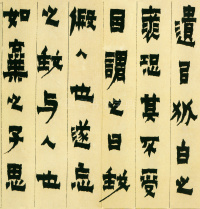 遺㠯狐白之
裘恐其不受
因謂之曰吾
假人也遂忘
之吾与人也
如棄之子思